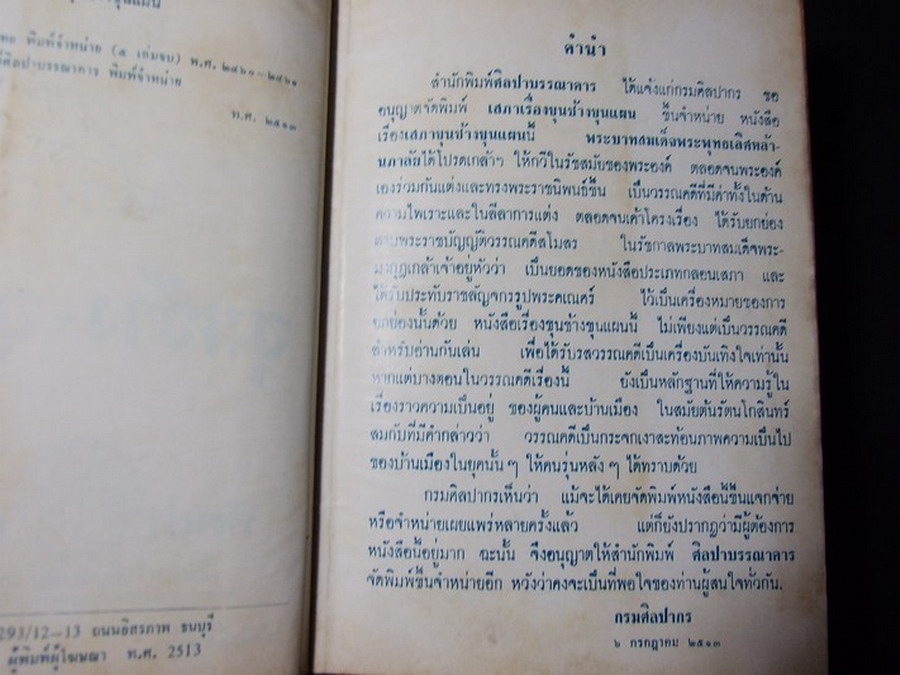 ขุนแผน
พิมพ์จำหน่าย (๕ เล่มจบ) พ.ศ. ๒๔๖๐–๒๔๖๑
ศิลปาบรรณาคาร พิมพ์จำหน่าย
พ.ศ. ๒๕๑๓
293/12–13 ถนนอิสรภาพ ธนบุรี
ผู้พิมพ์ผู้โฆษณา พ.ศ. 2513
คำนำ
สำนักพิมพ์ศิลปาบรรณาคาร ได้แจ้งแก่กรมศิลปากร ขอ
อนุญาตจัดพิมพ์ เสภาเรื่องขุนช้างขุนแผน ขึ้นจำหน่าย หนังสือ
เรื่องเสภาขุนช้างขุนแผนนี้ พระบาทสมเด็จพระพุทธเลิศหล้า-
นภาลัยได้โปรดเกล้าฯ ให้กวีในรัชสมัยของพระองค์ ตลอดจนพระองค์
เองร่วมกันแต่งและทรงพระราชนิพนธ์ขึ้น เป็นวรรณคดีที่มีค่าทั้งในด้าน
ความไพเราะและในลีลาการแต่ง ตลอดจนเค้าโครงเรื่อง ได้รับยกย่อง
ตามพระราชบัญญัติวรรณคดีสโมสร ในรัชกาลพระบาทสมเด็จพระ-
มงกุฎเกล้าเจ้าอยู่หัวว่า เป็นยอดของหนังสือประเภทกลอนเสภา และ
ได้รับประทับราชสัญจกรรูปพระคเณศร์ ไว้เป็นเครื่องหมายของการ
ยกย่องนั้นด้วย หนังสือเรื่องขุนช้างขุนแผนนี้ ไม่เพียงแต่เป็นวรรณคดี
สำหรับอ่านกันเล่น เพื่อได้รับรสวรรณคดีเป็นเครื่องบันเทิงใจเท่านั้น
หากแต่บางตอนในวรรณคดีเรื่องนี้ ยังเป็นหลักฐานที่ให้ความรู้ใน
เรื่องราวความเป็นอยู่ ของผู้คนและบ้านเมือง ในสมัยต้นรัตนโกสินทร์
สมกับที่มีคำกล่าวว่า วรรณคดีเป็นกระจกเงาสะท้อนภาพความเป็นไป
ของบ้านเมืองในยุคนั้น ๆ ให้คนรุ่นหลัง ๆ ได้ทราบด้วย
กรมศิลปากรเห็นว่า แม้จะได้เคยจัดพิมพ์หนังสือนี้ขึ้นแจกจ่าย
หรือจำหน่ายเผยแพร่หลายครั้งแล้ว แต่ก็ยังปรากฏว่ามีผู้ต้องการ
หนังสือนี้อยู่มาก ฉะนั้น จึงอนุญาตให้สำนักพิมพ์ ศิลปาบรรณาคาร
จัดพิมพ์ขึ้นจำหน่ายอีก หวังว่าคงจะเป็นที่พอใจของท่านผู้สนใจทั่วกัน.
กรมศิลปากร
๖ กรกฎาคม ๒๕๑๓